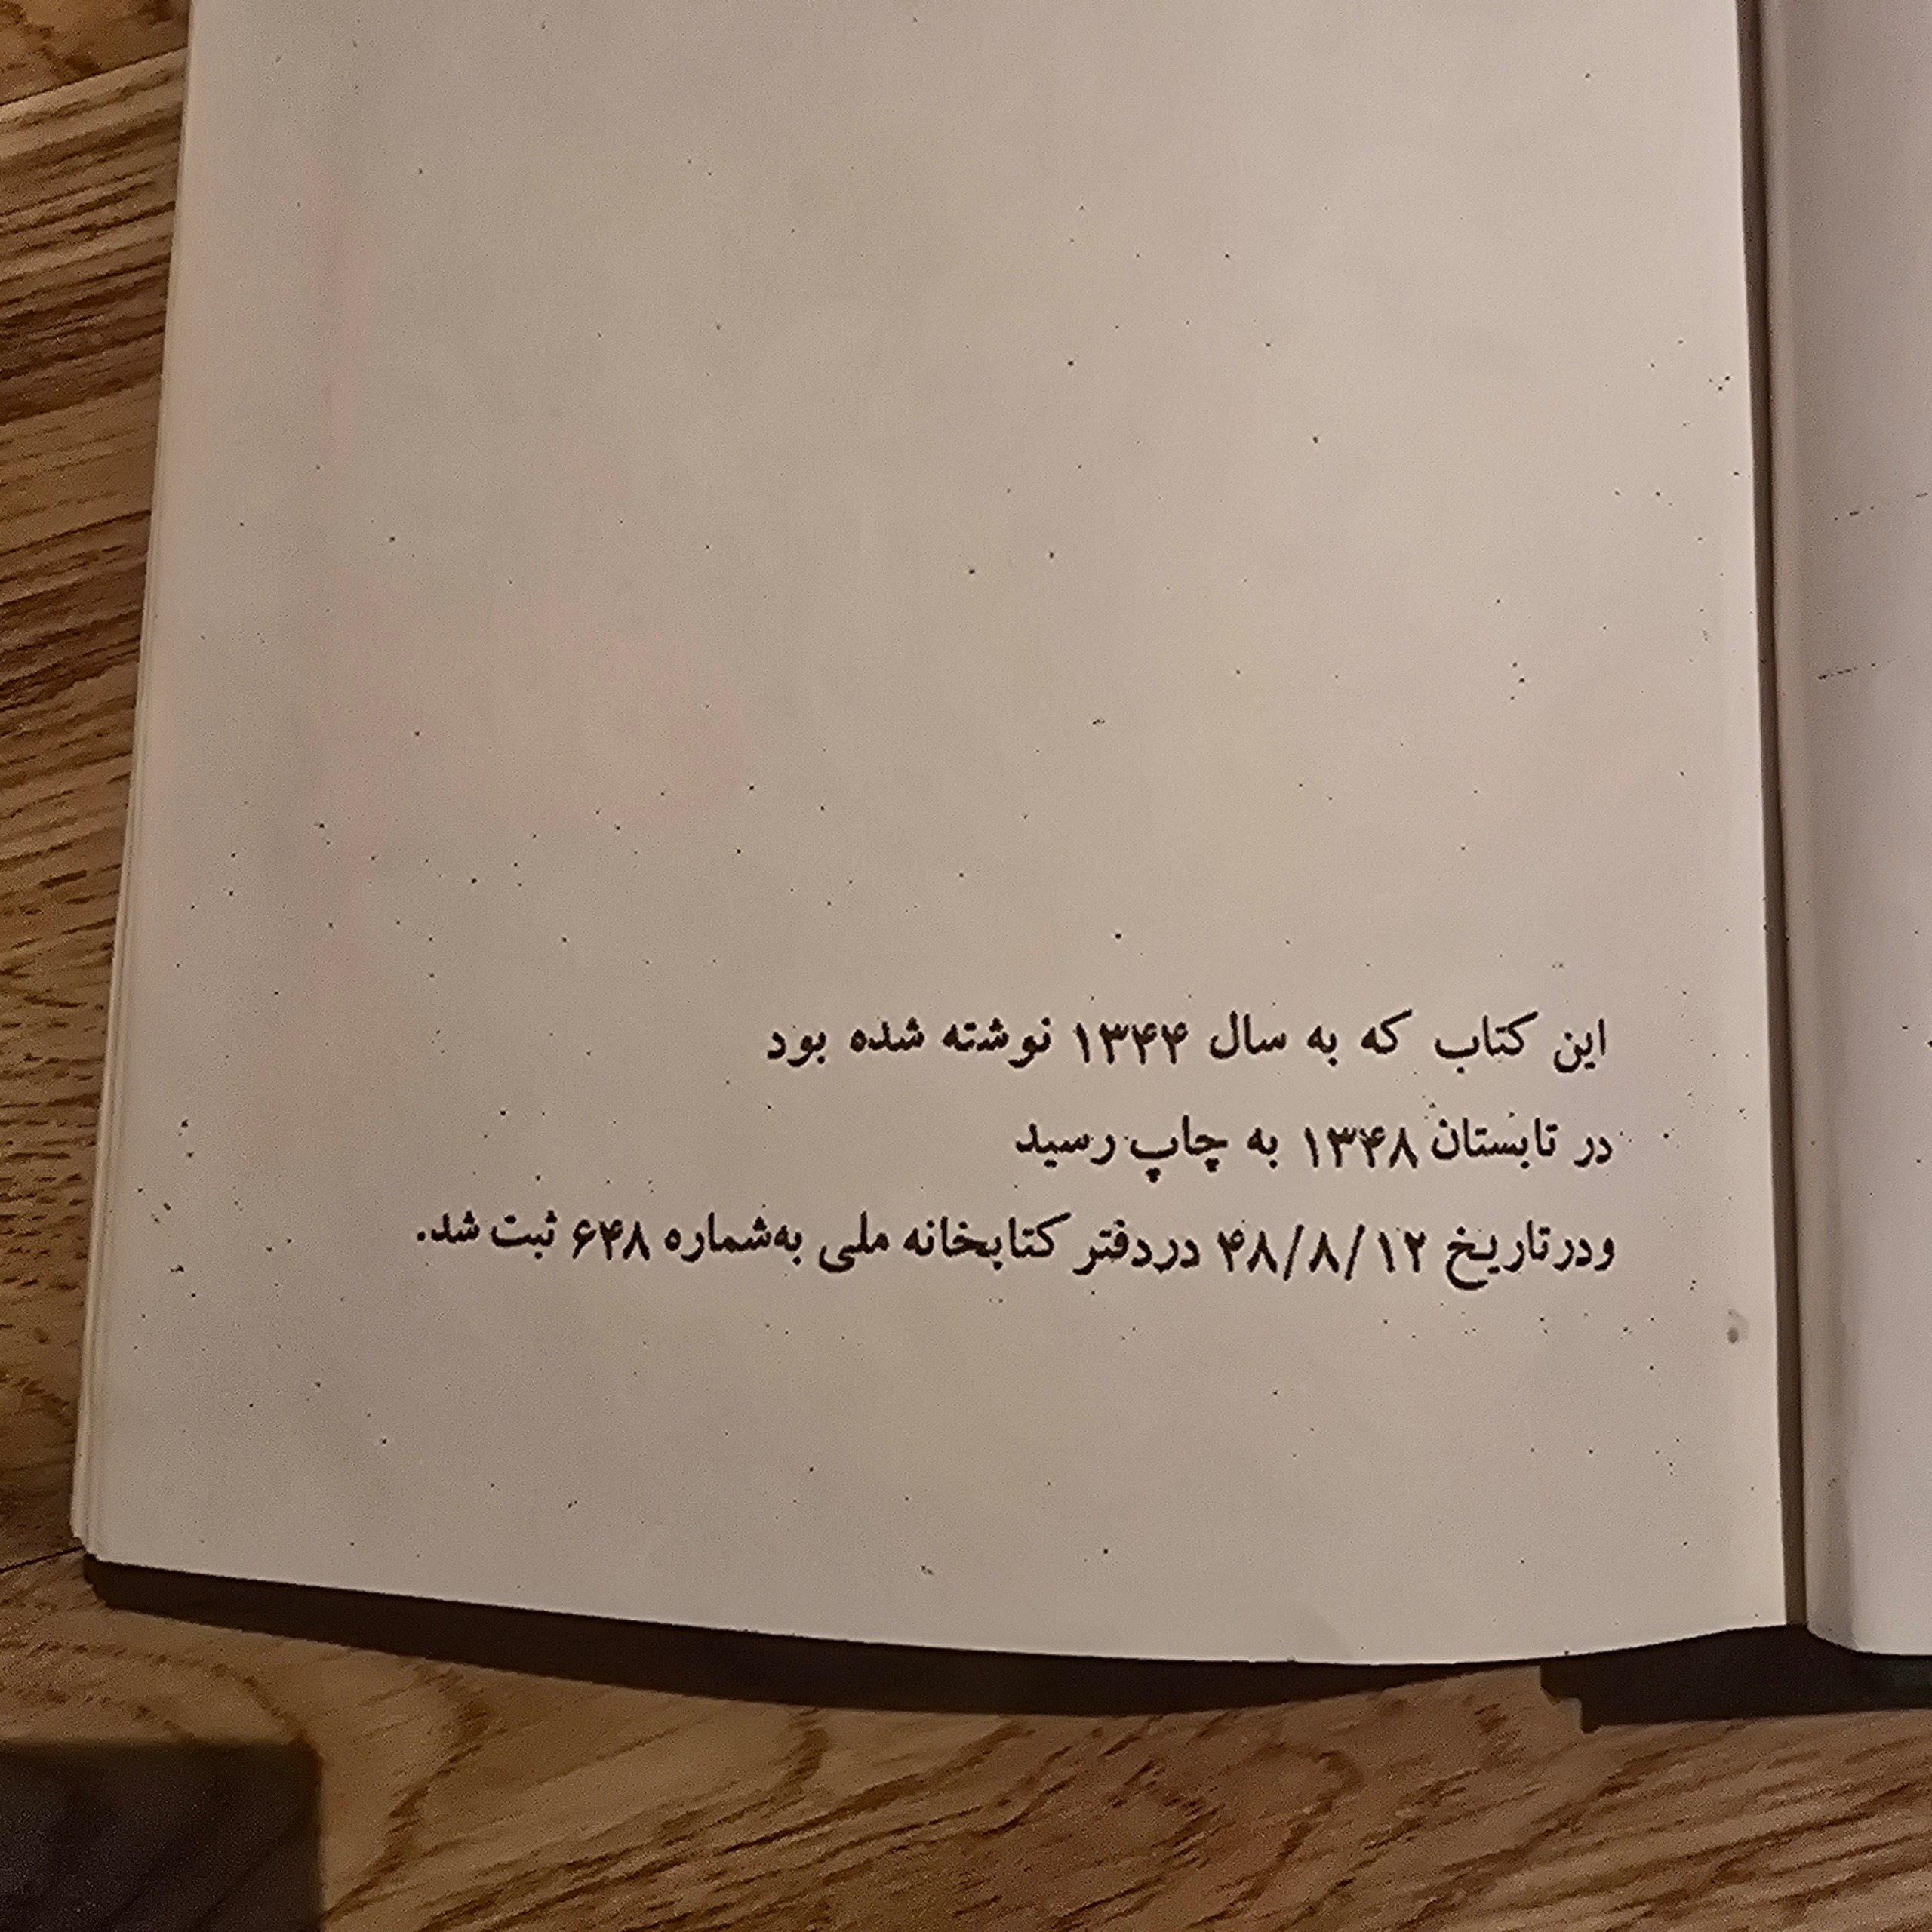 این کتاب که به سال ۱۳۴۴ نوشته شده بود
در تابستان ۱۳۴۸ به چاپ رسید
ودرتاریخ ۴۸/۸/۱۲ دردفتر کتابخانه ملی به‌شماره ۶۴۸ ثبت شد.